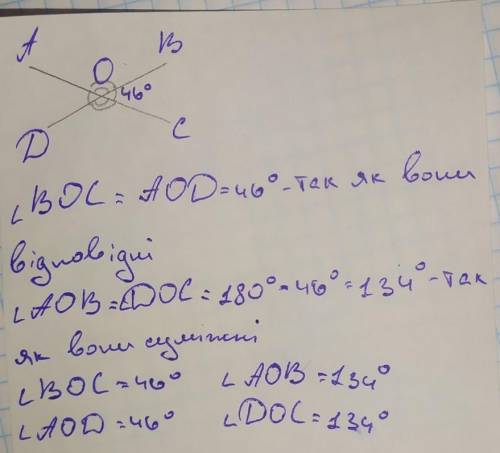 A B
O
46°
D C
∠BOC = AOD = 46° - так як вони
відповідні
∠AOB = ∠DOC = 180° - 46° = 134° - так
як вони суміжні
∠BOC = 46° ∠AOB = 134°
∠AOD = 46° ∠DOC = 134°